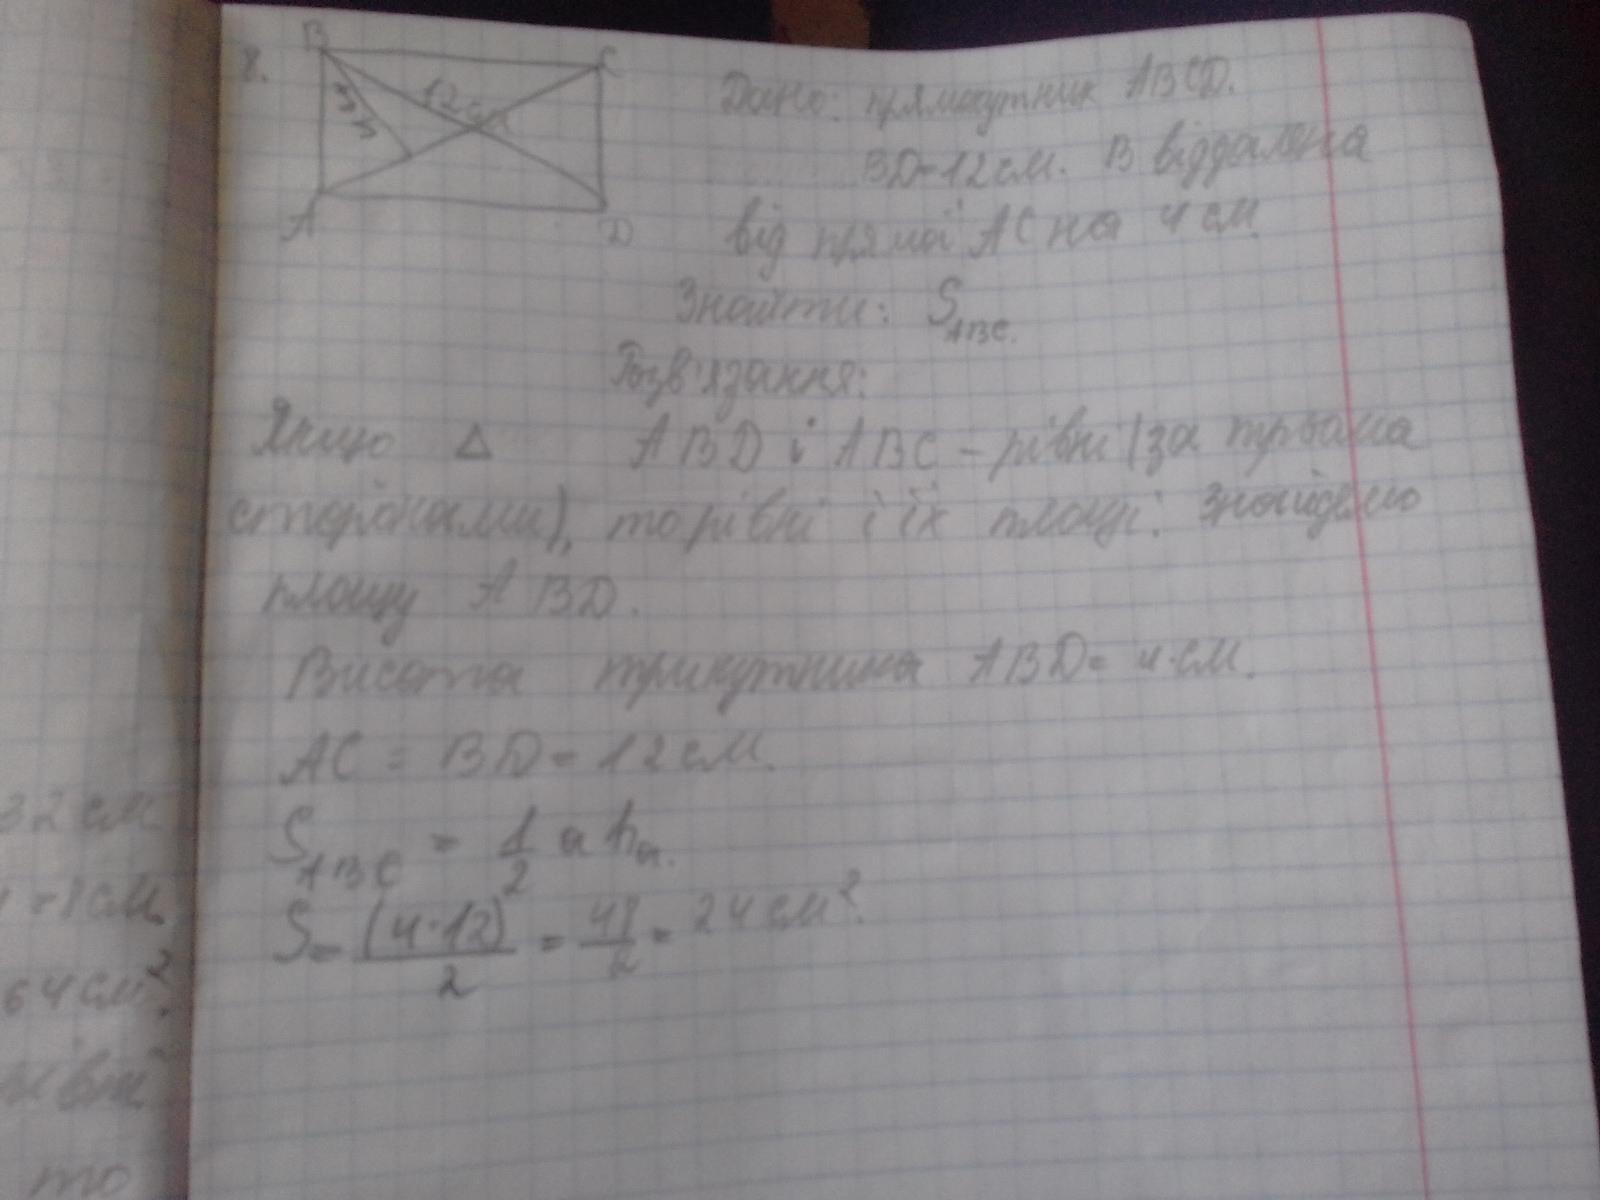 8.
B
C
12 см
4 см
A
D
Дано: прямокутник ABCD.
BD=12 см. В віддалена
від прямої AC на 4 см
Знайти: S ABC.
Розв'язання:
Якщо Δ ABD і ABC - рівні (за трьома
сторонами), то рівні і їх площі. Знайдемо
площу ABD.
Висота трикутника ABD= 4 см.
AC = BD = 12 см.
S ABC = 1/2 a hₐ.
S = (4·12)/2 = 48/2 = 24 см².
32 см
=8 см
64 см².
то